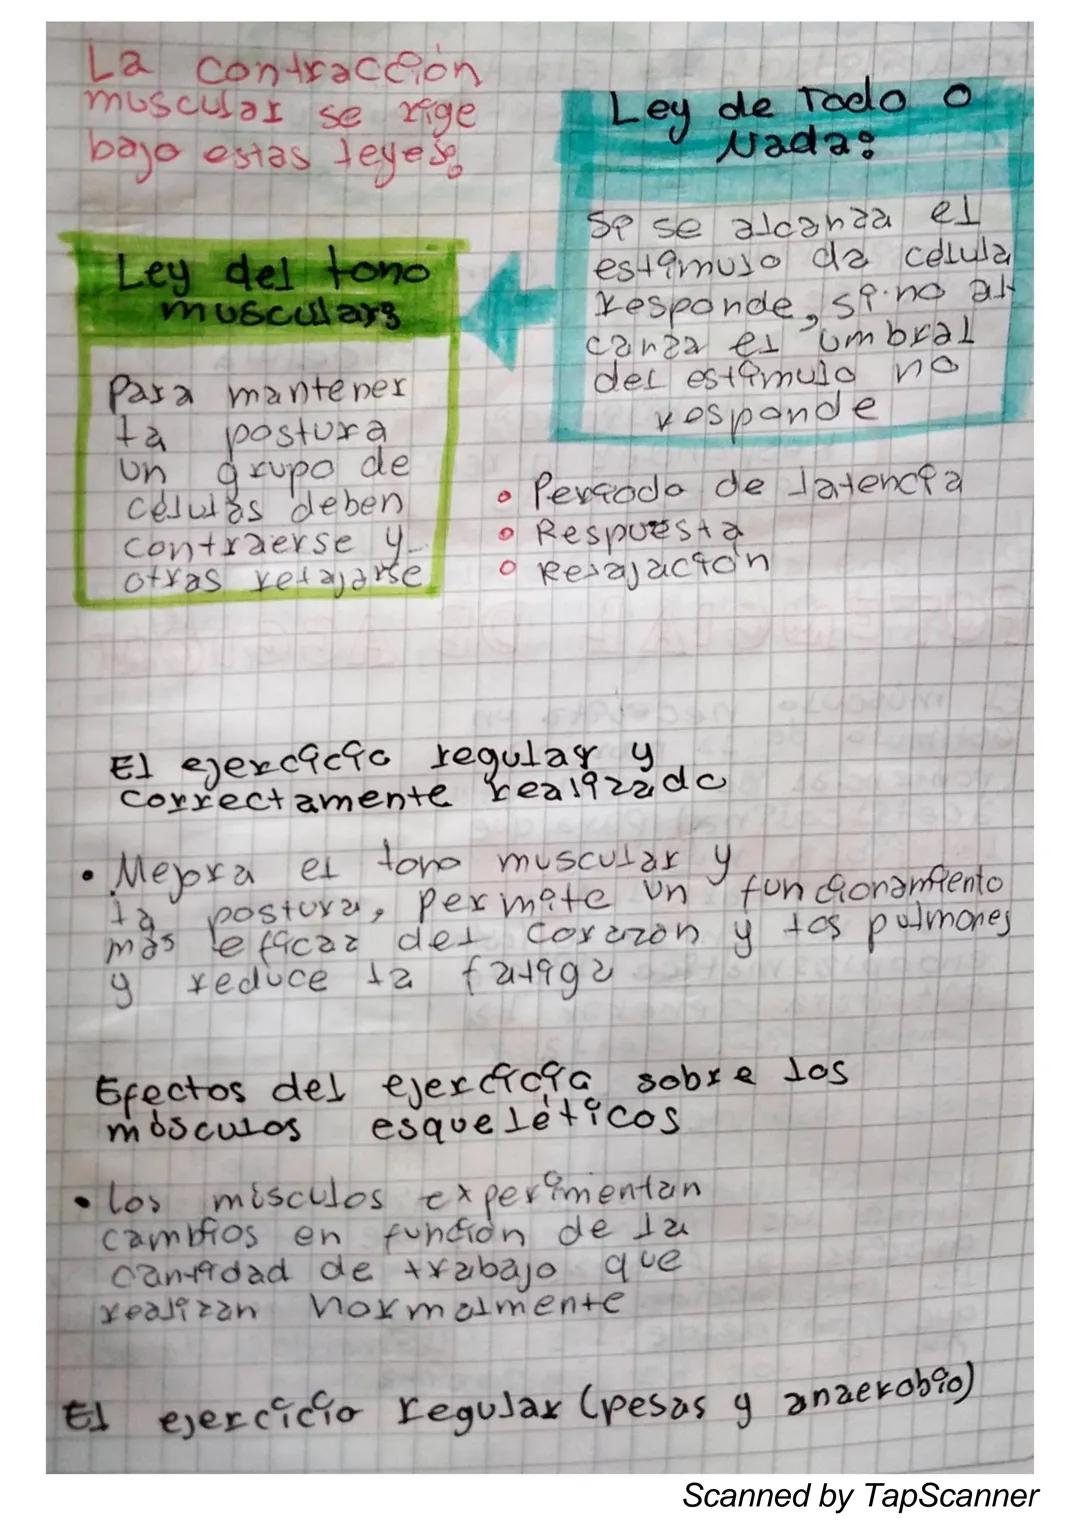 La contracción
muscular se rige
bajo estas leyes:
Ley de Todo o
Nada:
Si se alcanza el
estimulo da celula
responde, si no al-
canza el umbral
del estimulo no
responde
Ley del tono
muscular:
Para mantener
la postura
un grupo de
células deben
contraerse y
otras relajarse
• Periodo de latencia
• Respuesta
• Relajación
El ejercicio regular y
correctamente realizado
• Mejora el tono muscular y
la postura, permite un funcionamiento
más eficaz del corazon y los pulmones
y reduce la fatiga
Efectos del ejercicio sobre los
músculos esqueléticos
• los músculos experimentan
cambios en función de la
cantidad de trabajo que
realizan normalmente
El ejercicio regular (pesas y anaerobio)
Scanned by TapScanner